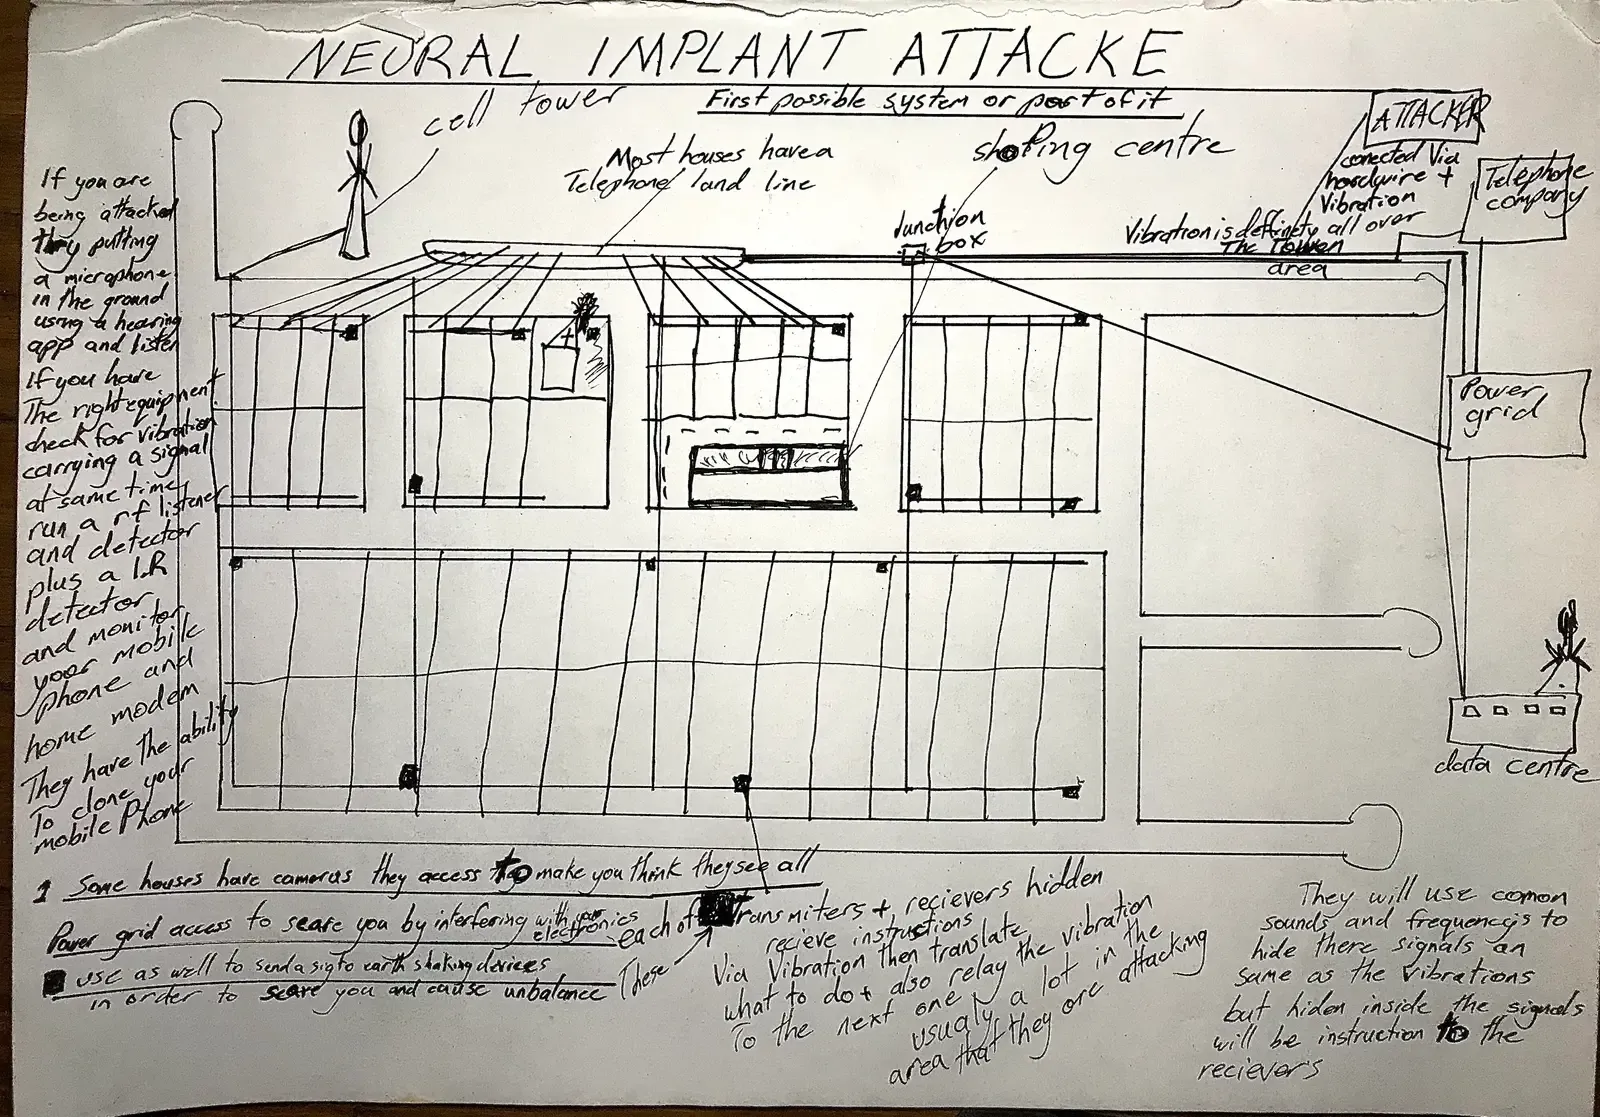 NEURAL IMPLANT ATTACKE
First possible system or part of it
cell tower
Most houses have a
Telephone/land line
shoping centre
Junction
box
ATTACKER
conected Via
hardwire +
Vibration
Telephone
company
Vibration is definety all over
The Towen
area
Power
grid
data centre
If you are
being attacked
try putting
a microphone
in the ground
using a hearing
app and listen
If you have
The right equipment
check for vibration
carrying a signal
at same time
run a rf listener
and detector
plus a I.R
detector
and monitor
your mobile
phone and
home modem
They have the ability
To clone your
mobile Phone
1 Some houses have cameras they access to make you think they see all
Power grid access to scare you by interfering with your electronics
use as well to send a sig to earth shaking devices
in order to scare you and cause unbalance
These
each of Transmiters + recievers hidden
recieve instructions
Via Vibration then translate
what to do + also relay the vibration
To the next one
usualy a lot in the
area that they are attacking
They will use comon
sounds and frequencys to
hide there signals an
same as the vibrations
but hiden inside the signals
will be instruction to the
reciever's